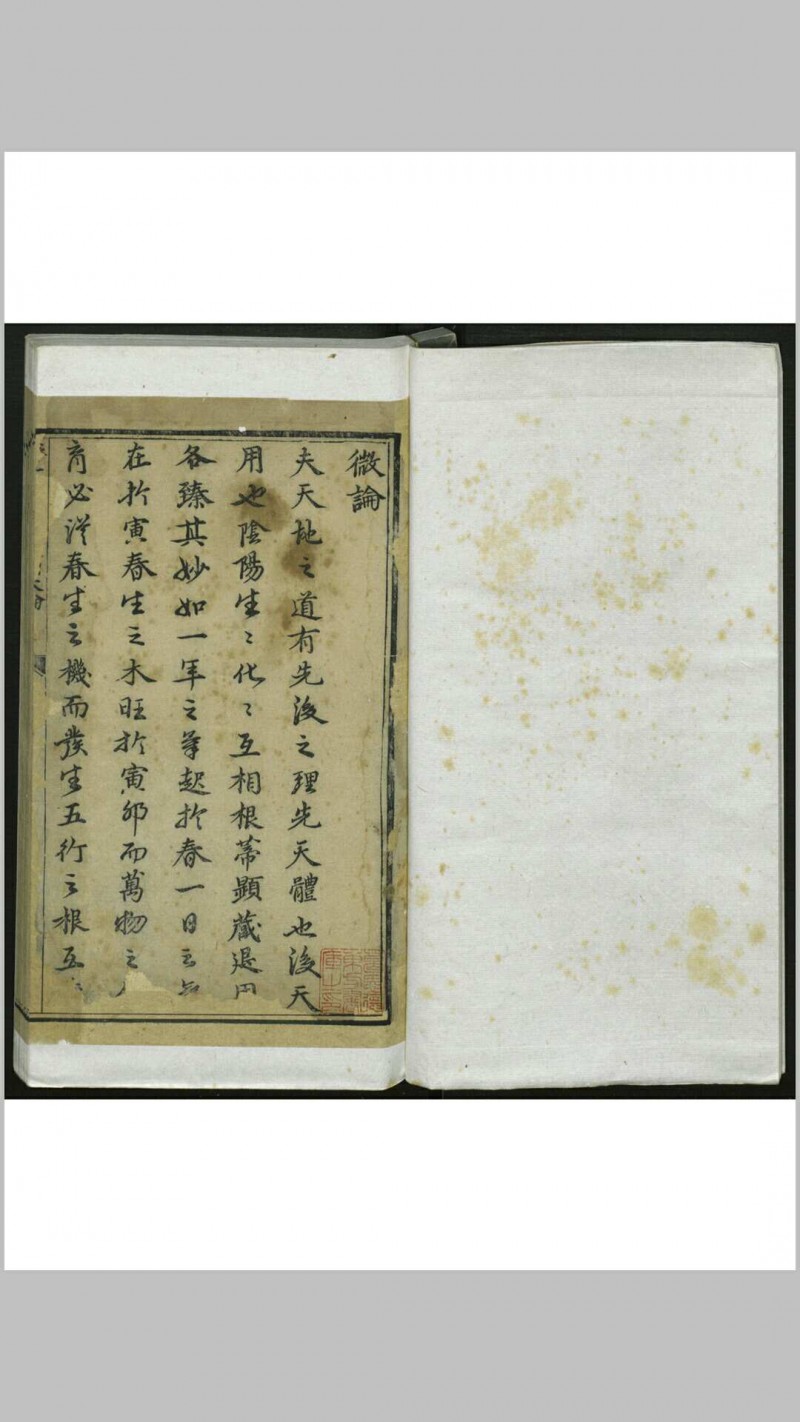 微論
夫天地之道有先後之理先天體也後天
用也陰陽生〻化〻互相根蒂顯藏退
各臻其妙如一年之芽起於春一日之
在於寅春生之木旺於寅卯而萬物之
育必從春生之機而發生五行之根五